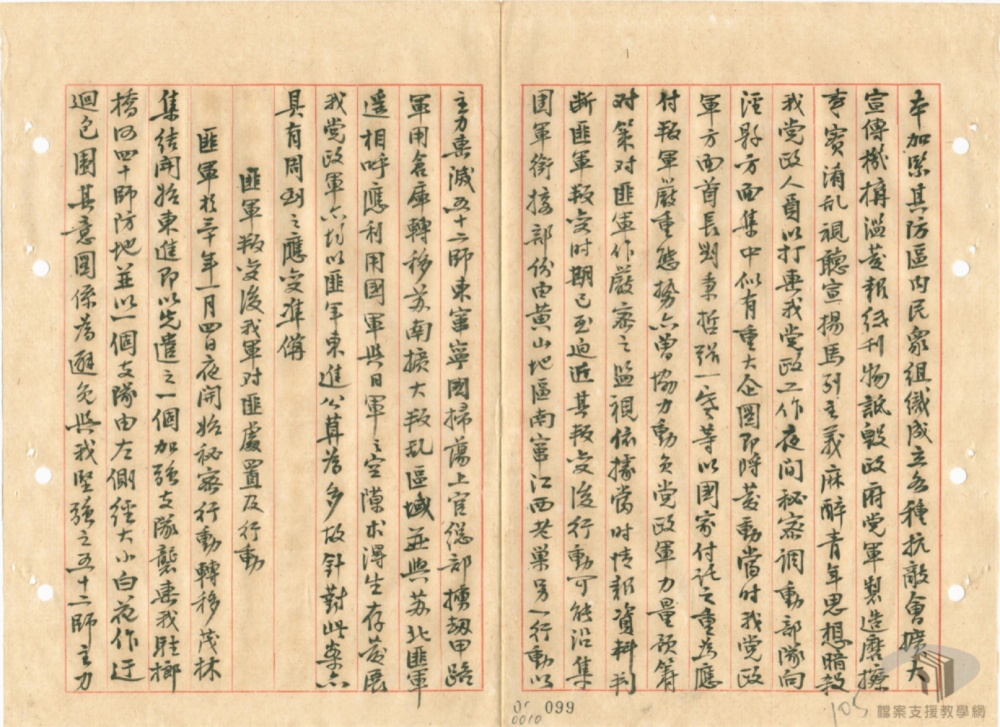 本加緊其防區內民眾組織成立各種抗敵會擴大
宣傳機構濫發報紙刊物詆毀政府党軍製造磨擦
事實淆乱視聽宣揚馬列主義麻醉青年思想暗殺
我党政人員以打擊我党政工作夜间秘密调動部隊向
涇縣方面集中似有重大企圖即將發動當时我党政
軍方面首長劉秉哲張一寒等以国家付託之重為應
付叛軍嚴重態勢亦曾協力動员党政軍力量預籌
对策对匪軍作嚴密之监視依據當时情報資料判
断匪軍叛变时期已至迫近其叛变後行動可能沿集
团軍銜接部份由黄山地區南竄江西老巢另一行動以
主力擊減五十二師東竄寧國掃蕩上官總部擄刼甲路
軍用倉庫轉移苏南擴大叛乱區域並與苏北匪軍
遥相呼應利用國軍與日軍之空隙求得生存發展
我党政軍亦討以匪軍東進公算為多故針對此案亦
具有周到之應变準備
匪軍叛变後我軍对匪處置及行動
匪軍於三十年一月四日夜開始秘密行動轉移茂林
集結開始東進即以先遣之一個加強支隊襲擊我駐榔
橋四四十師防地並以一個支隊由左側經大小白花作迂
迴包圍其意圖係為避免與我堅強之五十二師主力
099
0010
105
檔案支援教學網